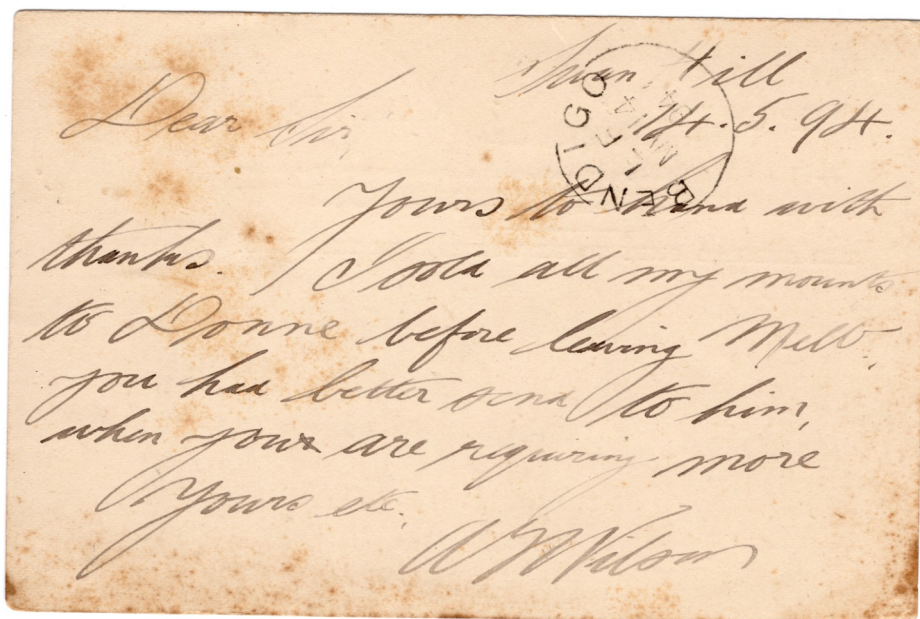 Swan Hill
14.5.94.
Dear Sir,
Yours to hand with
thanks. I sold all my mounts
to Donne before leaving Melb.
you had better send to him,
when yours are requiring more
Yours etc.
Wilson
BENDIGO